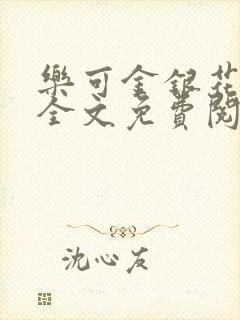 樂可金銀花
全文免費閱
沈心友